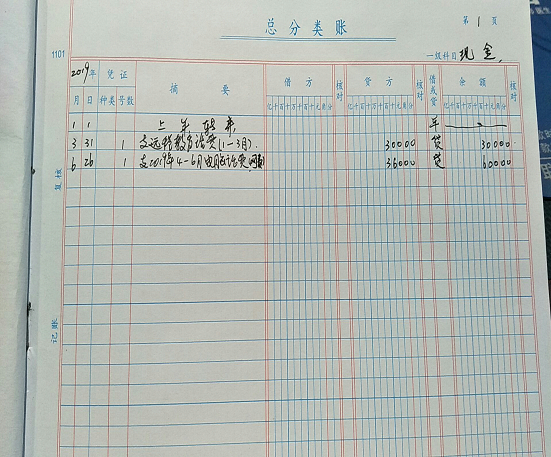 总分类账
第 1 页
1101
一级科目 现金
2019年 凭证 摘要 借方 核对 贷方 核对 借或贷 余额 核对
月 日 种类 号数 亿千百十万千百十元角分 亿千百十万千百十元角分 亿千百十万千百十元角分
1 1 上年转来 平
3 31 1 支远程教育话费(1-3月) 30000 贷 30000
6 26 1 支2019年4-6月 话费 36000 贷 60000
复核
记账